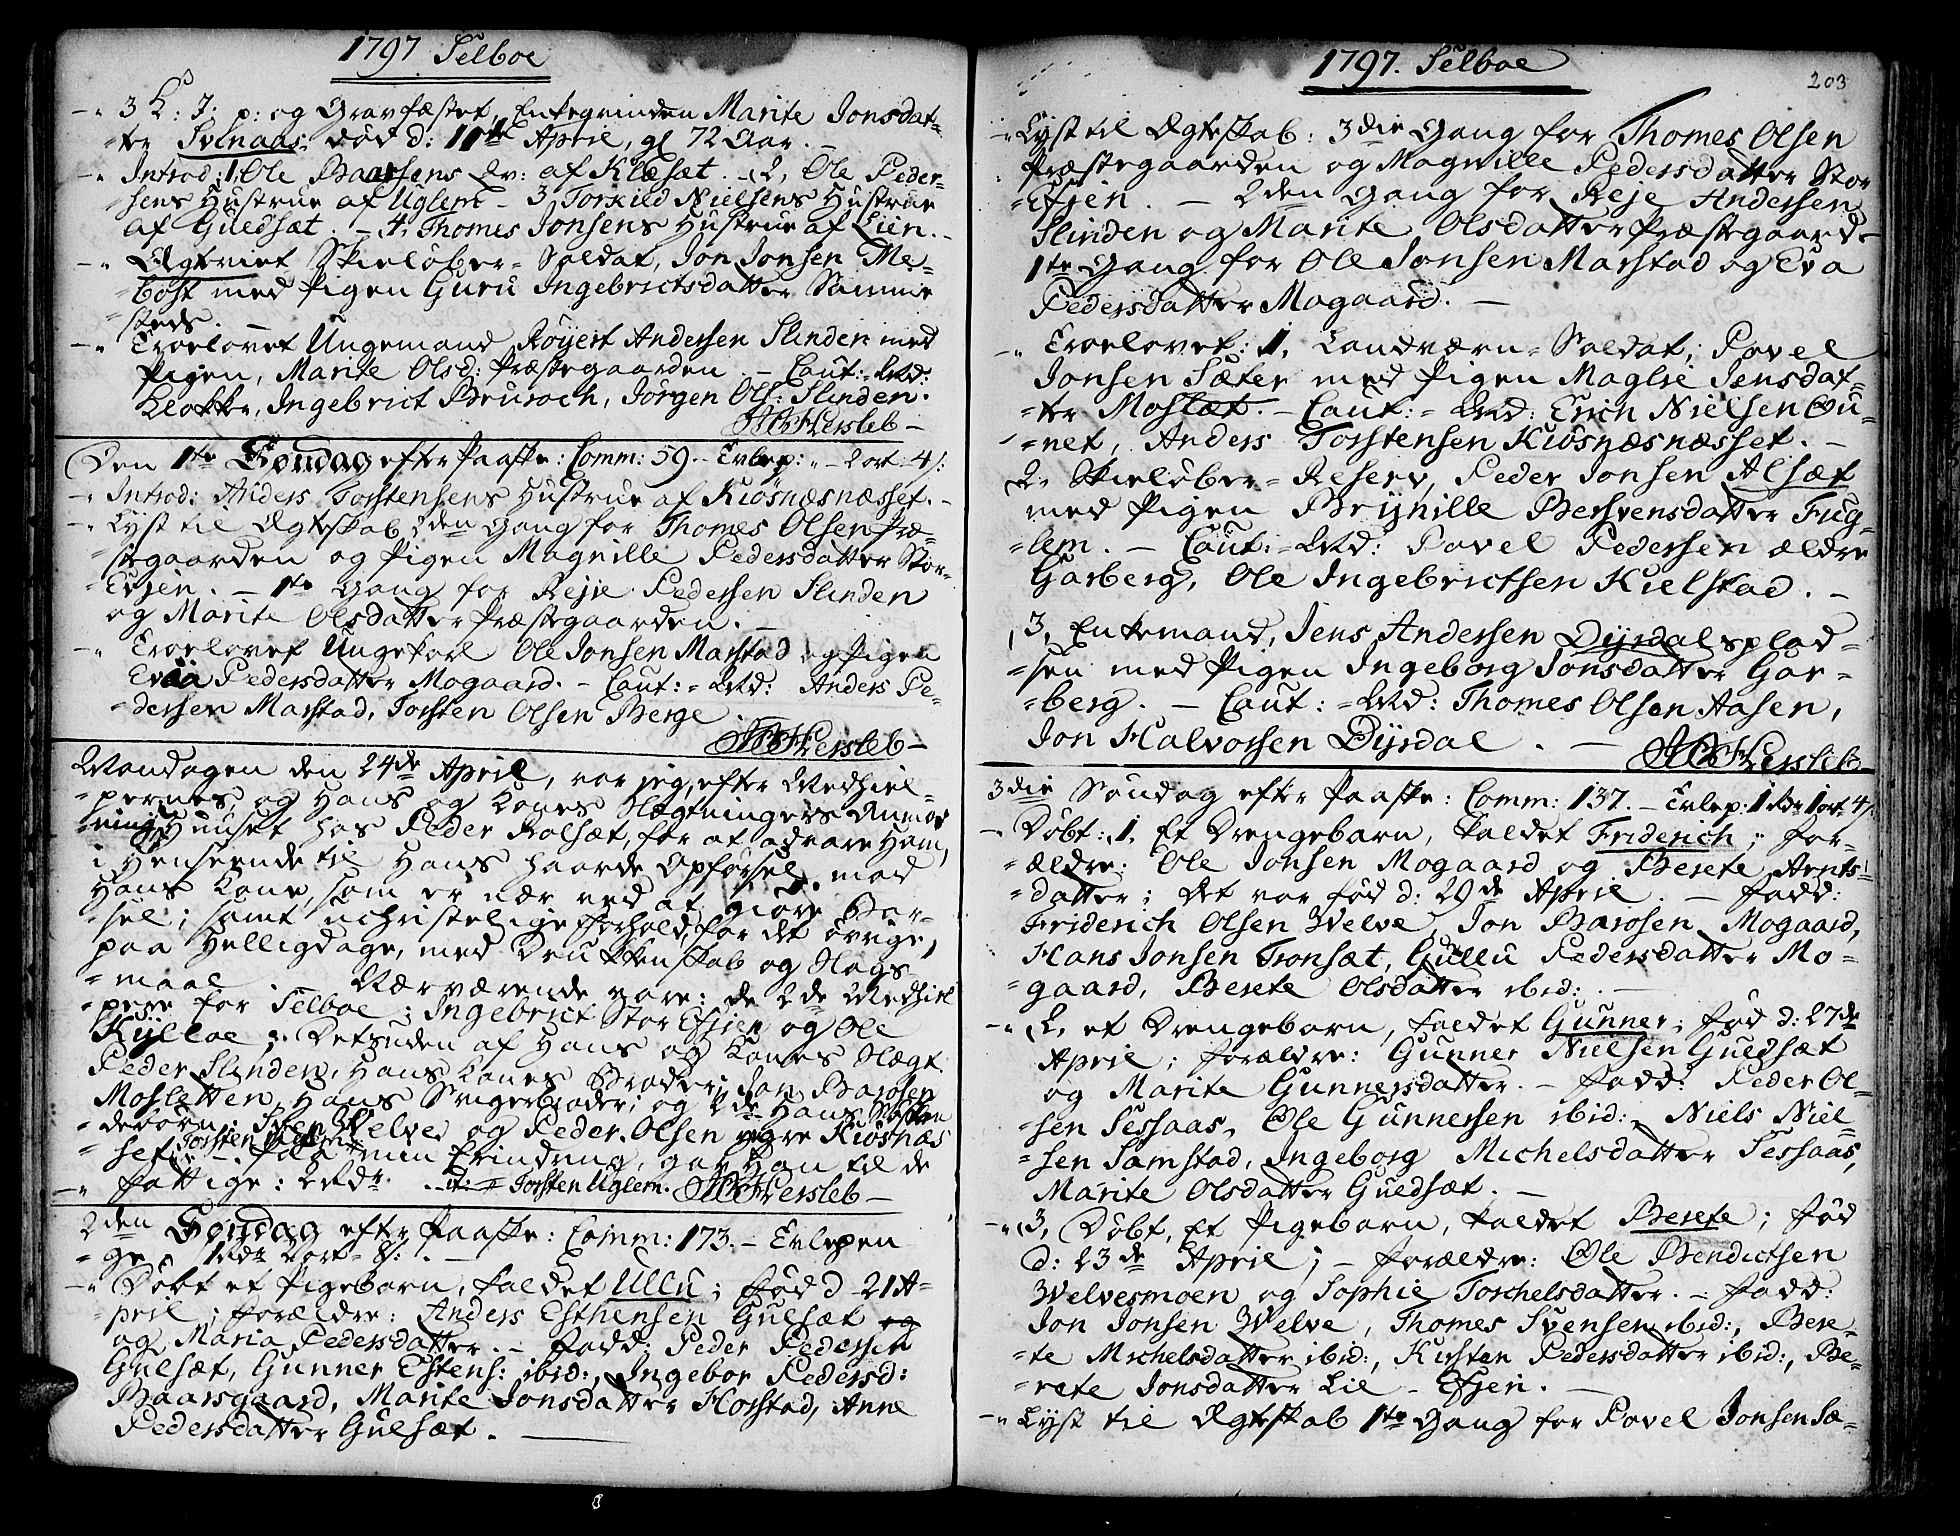 1797 Selboe
-" 3 K: J: p: og Gravfæstet, Enkeqvinden Marite Jonsdat-
-ter Svenaas, død d: 11te April, gl 72 Aar. -
-" Introd: 1, Ole Baarsens Qv: af Klæsæt. - 2, Ole Peder-
sens Hustrue af Uglem - 3, Torkild Nielsens Hustrue
af Guldsæt. - 4, Thomes Jonsens Hustrue af Lien. -
-" Egteviet Skieløber-Soldat, Jon Jonsen Me-
-bost med Pigen Guru Ingebrictsdatter Samme
steds. -
-" Trolovet Ungemand Røyert Andersen Slinden med
Pigen, Marite Olsd: Præstegaarden. - Caut:-Md:
Klokker, Ingebrict Beuroch, Jørgen Ols: Slinden.
Hersleb -
Den 1te Søndag efter Paaske: Comm: 59. - Evlep: " - 2 ort - 4 s:
-" Introd: Anders Torstensens Hustrue af Kiøsnæsnæsset. -
-" Lyst til Egteskab 2den Gang for Thomes Olsen Præ-
-stegaarden og Pigen Magnille Pedersdatter Stor-
-Evjen. - 1te Gang for Rejer Pedersen Slinden
og Marite Olsdatter Præstegaarden. -
-" Trolovet Ungekarl Ole Jonsen Marstad og Pigen
Eva Pedersdatter Mogaard. - Caut:-Md: Anders Pe-
-dersen Marstad, Torsten Olsen Berge.
Hersleb -
Mandagen den 24de April, var jeg, efter Medhiel-
-pernes, og Hans og Kones Slægtningers Anmod-
-ning, i Huuset hos Peder Rolsæt, for at advare Ham,
i Henseende til Hans haarde Opførsel mod
Hans Kone, som er nær ved at giøre Bar-
-sel; samt uchristelige Forhold, for det øvrige,
paa Helligdage, med Drukkenskab og Slags-
-maal. - Nærværende vare: de 2de Medhiel
-pere for Selboe: Ingebrict Stor Evjen og Ole
Kulloe; - Desuden af Hans og Kones Slægt
Peder Slinden, Hans Kones Broder; Jon Baarsen
Mosletten, Hans Svigerbroder; og 2de Hans Søsken
deborn, Sven Velve, og Peder Olsen øvre Kiøsnæs
Torsten Uglem
set. - Paa min Erindring, gav Han til de
-" Fattige: 1 Rdr. Torsten Uglem. Hersleb -
2den Søndag efter Paaske: Comm: 173. - Evlepen
-ge, 1 Rdr 2 ort - 8: . -
-" Døbt et Pigebarn, kaldet Ullu; Fød d. 21 A-
-pril; Forældre: Anders Esthensen Gulsæt og
og Maria Pedersdatter. - Fadd: Peder Pedersen
Gulsæt, Gunner Estens: ibid:, Ingebor Pedersd:
Baarsgaard, Marite Jonsdatter Horstad, Anne
Pedersdatter Gulsæt. -
1797. Selboe
203
-" Lyst til Egteskab: 3die Gang for Thomes Olsen
Præstegaarden og Magnille Pedersdatter Stor
-Efjen. - 2den Gang for Reje Andersen
Slinden og Marite Olsdatter Præstegaard. -
1te Gang for Ole Jonsen Marstad og Eva
Pedersdatter Mogaard. -
-" Trolovet: 1, Landværn-Soldat, Povel
Jonsen Sæter med Pigen Maglie Jensdat-
-ter Moslæt. - Caut:-Md: Erich Nielsen Ou-
-net, Anders Torstensen Kiøsnæsnæsset. -
2, Skieløber-Reserv, Peder Jonsen Alsæt
med Pigen Brynille Bersvensdatter Fug-
-lem. - Caut:-Md: Povel Pedersen ældre
Garberg, Ole Ingebrictsen Kielstad. -
3, Enkemand, Jens Andersen Dyrdalsplad-
-sen med Pigen Ingeborg Jonsdatter Gar-
-berg. - Caut:-Md: Thomes Olsen Aasen,
Jon Halvorsen Dyrdal. -
Hersleb
3die Søndag efter Paaske: Comm: 137. - Evlep: 1 Rdr 1 ort 4 s
-" Døbt: 1, Et Drengebarn, kaldet Friderich; For-
-ældre: Ole Jonsen Mogaard og Berete Arnts-
-datter; Det var fød d: 29de April. - Fadd:
Friderich Olsen Velve, Jon Baarsen Mogaard,
Hans Jonsen Tronsæt, Gullu Pedersdatter Mo-
-gaard, Berete Olsdatter ibid: . -
-" 2, et Drengebarn, kaldet Gunner; fød d: 27de
April; Forældre: Gunner Nielsen Guldsæt
og Marite Gunnersdatter. - Fadd: Peder Ol-
sen Sessaas, Ole Gunnersen ibid:, Niels Niel-
-sen Samstad, Ingeborg Michelsdatter Sessaas,
Marite Olsdatter Guldsæt. -
-" 3, Døbt, Et Pigebarn, kaldet Berete; fød
d: 23de April; - Forældre: Ole Bendictsen
Velvesmoen og Sophie Torchelsdatter. - Fadd:
Jon Jonsen Velve, Thomes Svensen ibid:, Bere-
-te Michelsdatter ibid:, Kirsten Pedersdatter ibid:, Be-
-rete Jonsdatter Lie-Efjen. -
-" Lyst til Egteskab 1te Gang for Povel Jonsen Sæ-